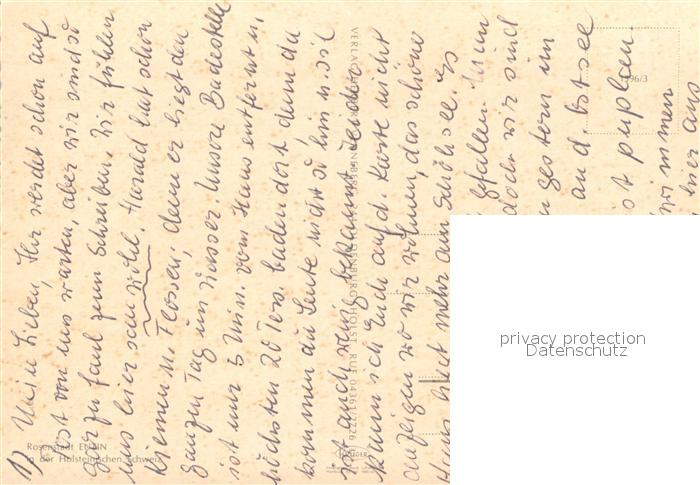 1) Meine Lieben, Ihr werdet schon auf
Post von uns warten, aber wir sind so
gar zu faul zum Schreiben. Wir fühlen
uns hier sehr wohl. Harald hat schon
Kiemen u. Flossen, denn er liegt den
ganzen Tag im Wasser. Unsere Badestelle
ist nur 5 Min. vom Haus entfernt u.
höchsten 20 Pers. baden dort, denn da
kommen an Leute nicht so hin u. sie
ist auch wenig bekannt. Leider
kann ich Euch auf d. Karte nicht
anzeigen wo wir wohnen, das schöne
Haus steht mehr am See. Es
gefallen. Nun
doch wir sind
gestern im
and. Ostsee
ist
schwimmen
hier aus
Rosenstadt EUTIN
in der Holsteinischen Schweiz
VERLAG
HOLST. RUF 04361/2726
KRÜGER
1196/3
privacy protection
Datenschutz